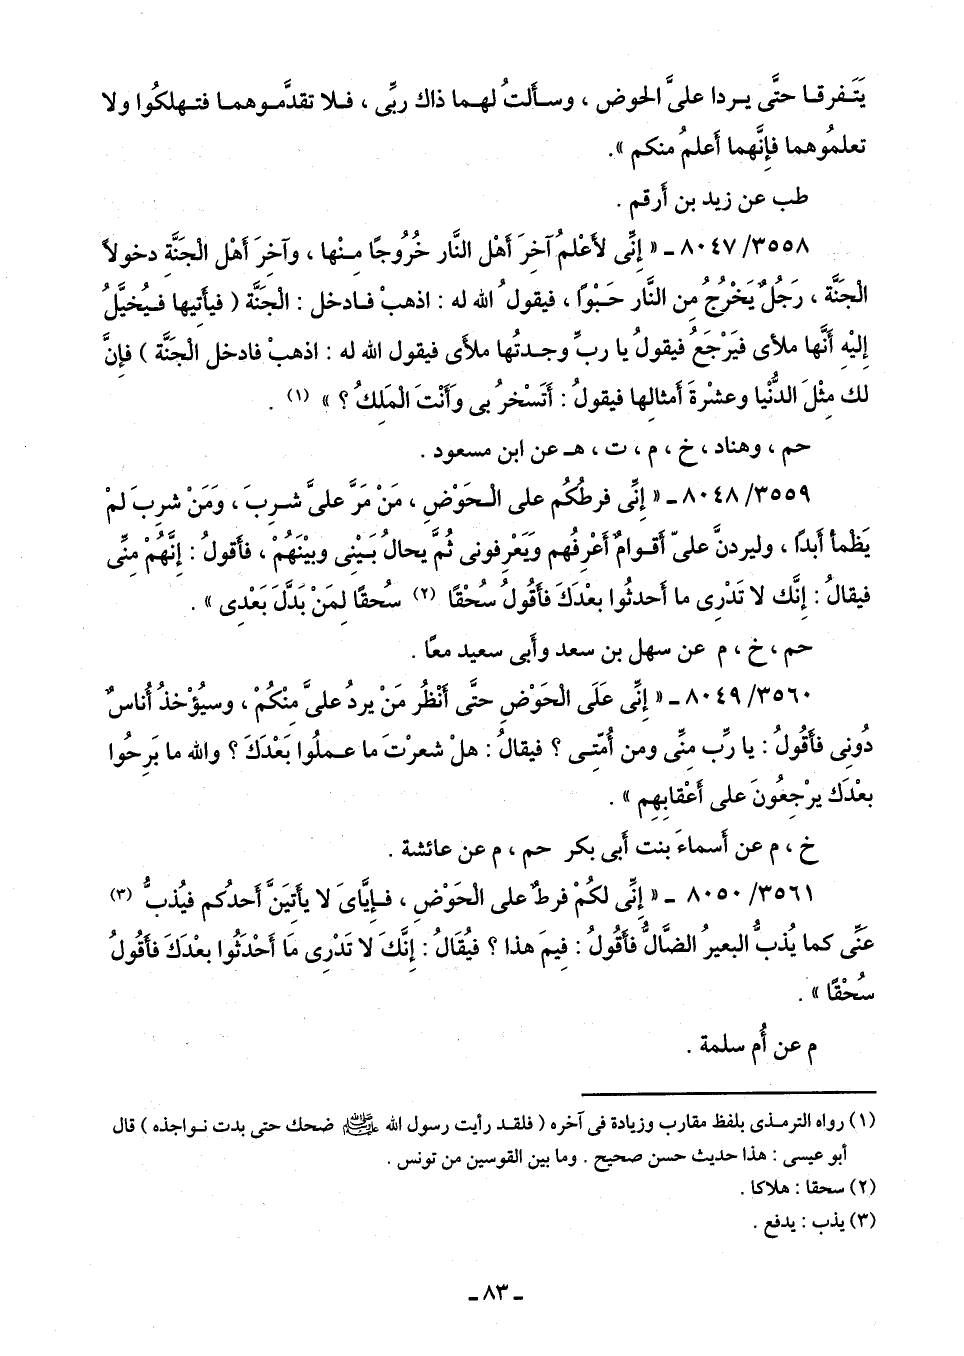 يَتَفرقا حتَّى يردا علىَّ الحوض ، وسألتُ لهما ذاك ربِّى ، فلا تقدَّموهما فتهلكُوا ولا
تعلمُوهما فإنَّهما أعلمُ منكم » .
طب عن زيد بن أرقم .
٨٠٤٧/٣٥٥٨ ـ « إنِّى لأعْلمُ آخرَ أهْل النَّار خُرُوجًا مِنْها ، وآخرَ أهْل الْجَنَّةِ دخولاً
الْجنَّة ، رَجُلٌ يَخْرُجُ مِن النَّار حَبْوًا ، فيقولُ الله له : اذهبْ فادخل : الْجَنَّة ( فيأتيها فيُخيَّلُ
إليْهِ أنَّها ملأى فيَرْجَعُ فيقولُ يا ربِّ وجدتُها ملأى فيقول الله له : اذهبْ فادخل الْجنَّة ) فإنَّ
لك مِثْلَ الدُّنْيا وعشْرةَ أمثالِها فيقولُ : أتَسْخرُ بى وَأنْتَ الْمَلِكُ ؟ » (١) .
حم ، وهناد ، خ ، م ، ت ، هـ عن ابن مسعود .
٨٠٤٨/٣٥٥٩ ـ « إنِّى فرطُكُم على الْحَوْضِ ، مَنْ مَرَّ علىَّ شربَ ، وَمَنْ شربَ لمْ
يَظْمأ أبدًا ، وليردنَّ علىّ أقوامٌ أعْرِفُهم وَيَعْرِفونى ثُمَّ يحالُ بَيْنِى وبيْنَهُمْ ، فأقولُ : إنَّهُمْ مِنِّى
فيقالُ : إنَّك لا تَدْرِى ما أحدثُوا بعْدَكَ فأقُولُ سُحْقًا (٢) سُحقًا لِمَنْ بَدَّلَ بَعْدِى » .
حم ، خ ، م عن سهل بن سعد وأبى سعيد معًا .
٨٠٤٩/٣٥٦٠ ـ « إنِّى عَلَى الْحَوْضِ حتَّى أنْظُر مَنْ يردُ علىَّ مِنْكُمْ ، وسيُؤْخذُ أُناسٌ
دُونِى فأقُولُ : يا ربِّ مِنِّى ومن أُمَّتِى ؟ فيقالُ : هلْ شعرْتَ ما عملُوا بَعْدَكَ ؟ والله ما بَرِحُوا
بعْدَك يرْجِعُونَ على أعْقابِهِم » .
خ ، م عن أسماءَ بنت أبى بكر حم ، م عن عائشة .
٨٠٥٠/٣٥٦١ ـ « إنِّى لكُمْ فرطٌ على الْحَوْضِ ، فإيَّاىَ لا يأتيَنَّ أحدُكم فيُذبُّ (٣)
عَنِّى كما يُذبُّ البعيرُ الضَّالُّ فأقُولُ : فِيمَ هذا ؟ فيُقَالُ : إنَّكَ لا تَدْرِى مَا أحْدَثُوا بعْدَكَ فأقُولُ
سُحْقًا » .
م عن أُم سلمة .
(١) رواه الترمذى بلفظ مقارب وزيادة فى آخره ( فلقد رأيت رسول الله ﷺ ضحك حتى بدت نواجذه ) قال
أبو عيسى : هذا حديث حسن صحيح . وما بين القوسين من تونس .
(٢) سحقا : هلاكا .
(٣) يذب : يدفع .
ـ ٨٣ ـ